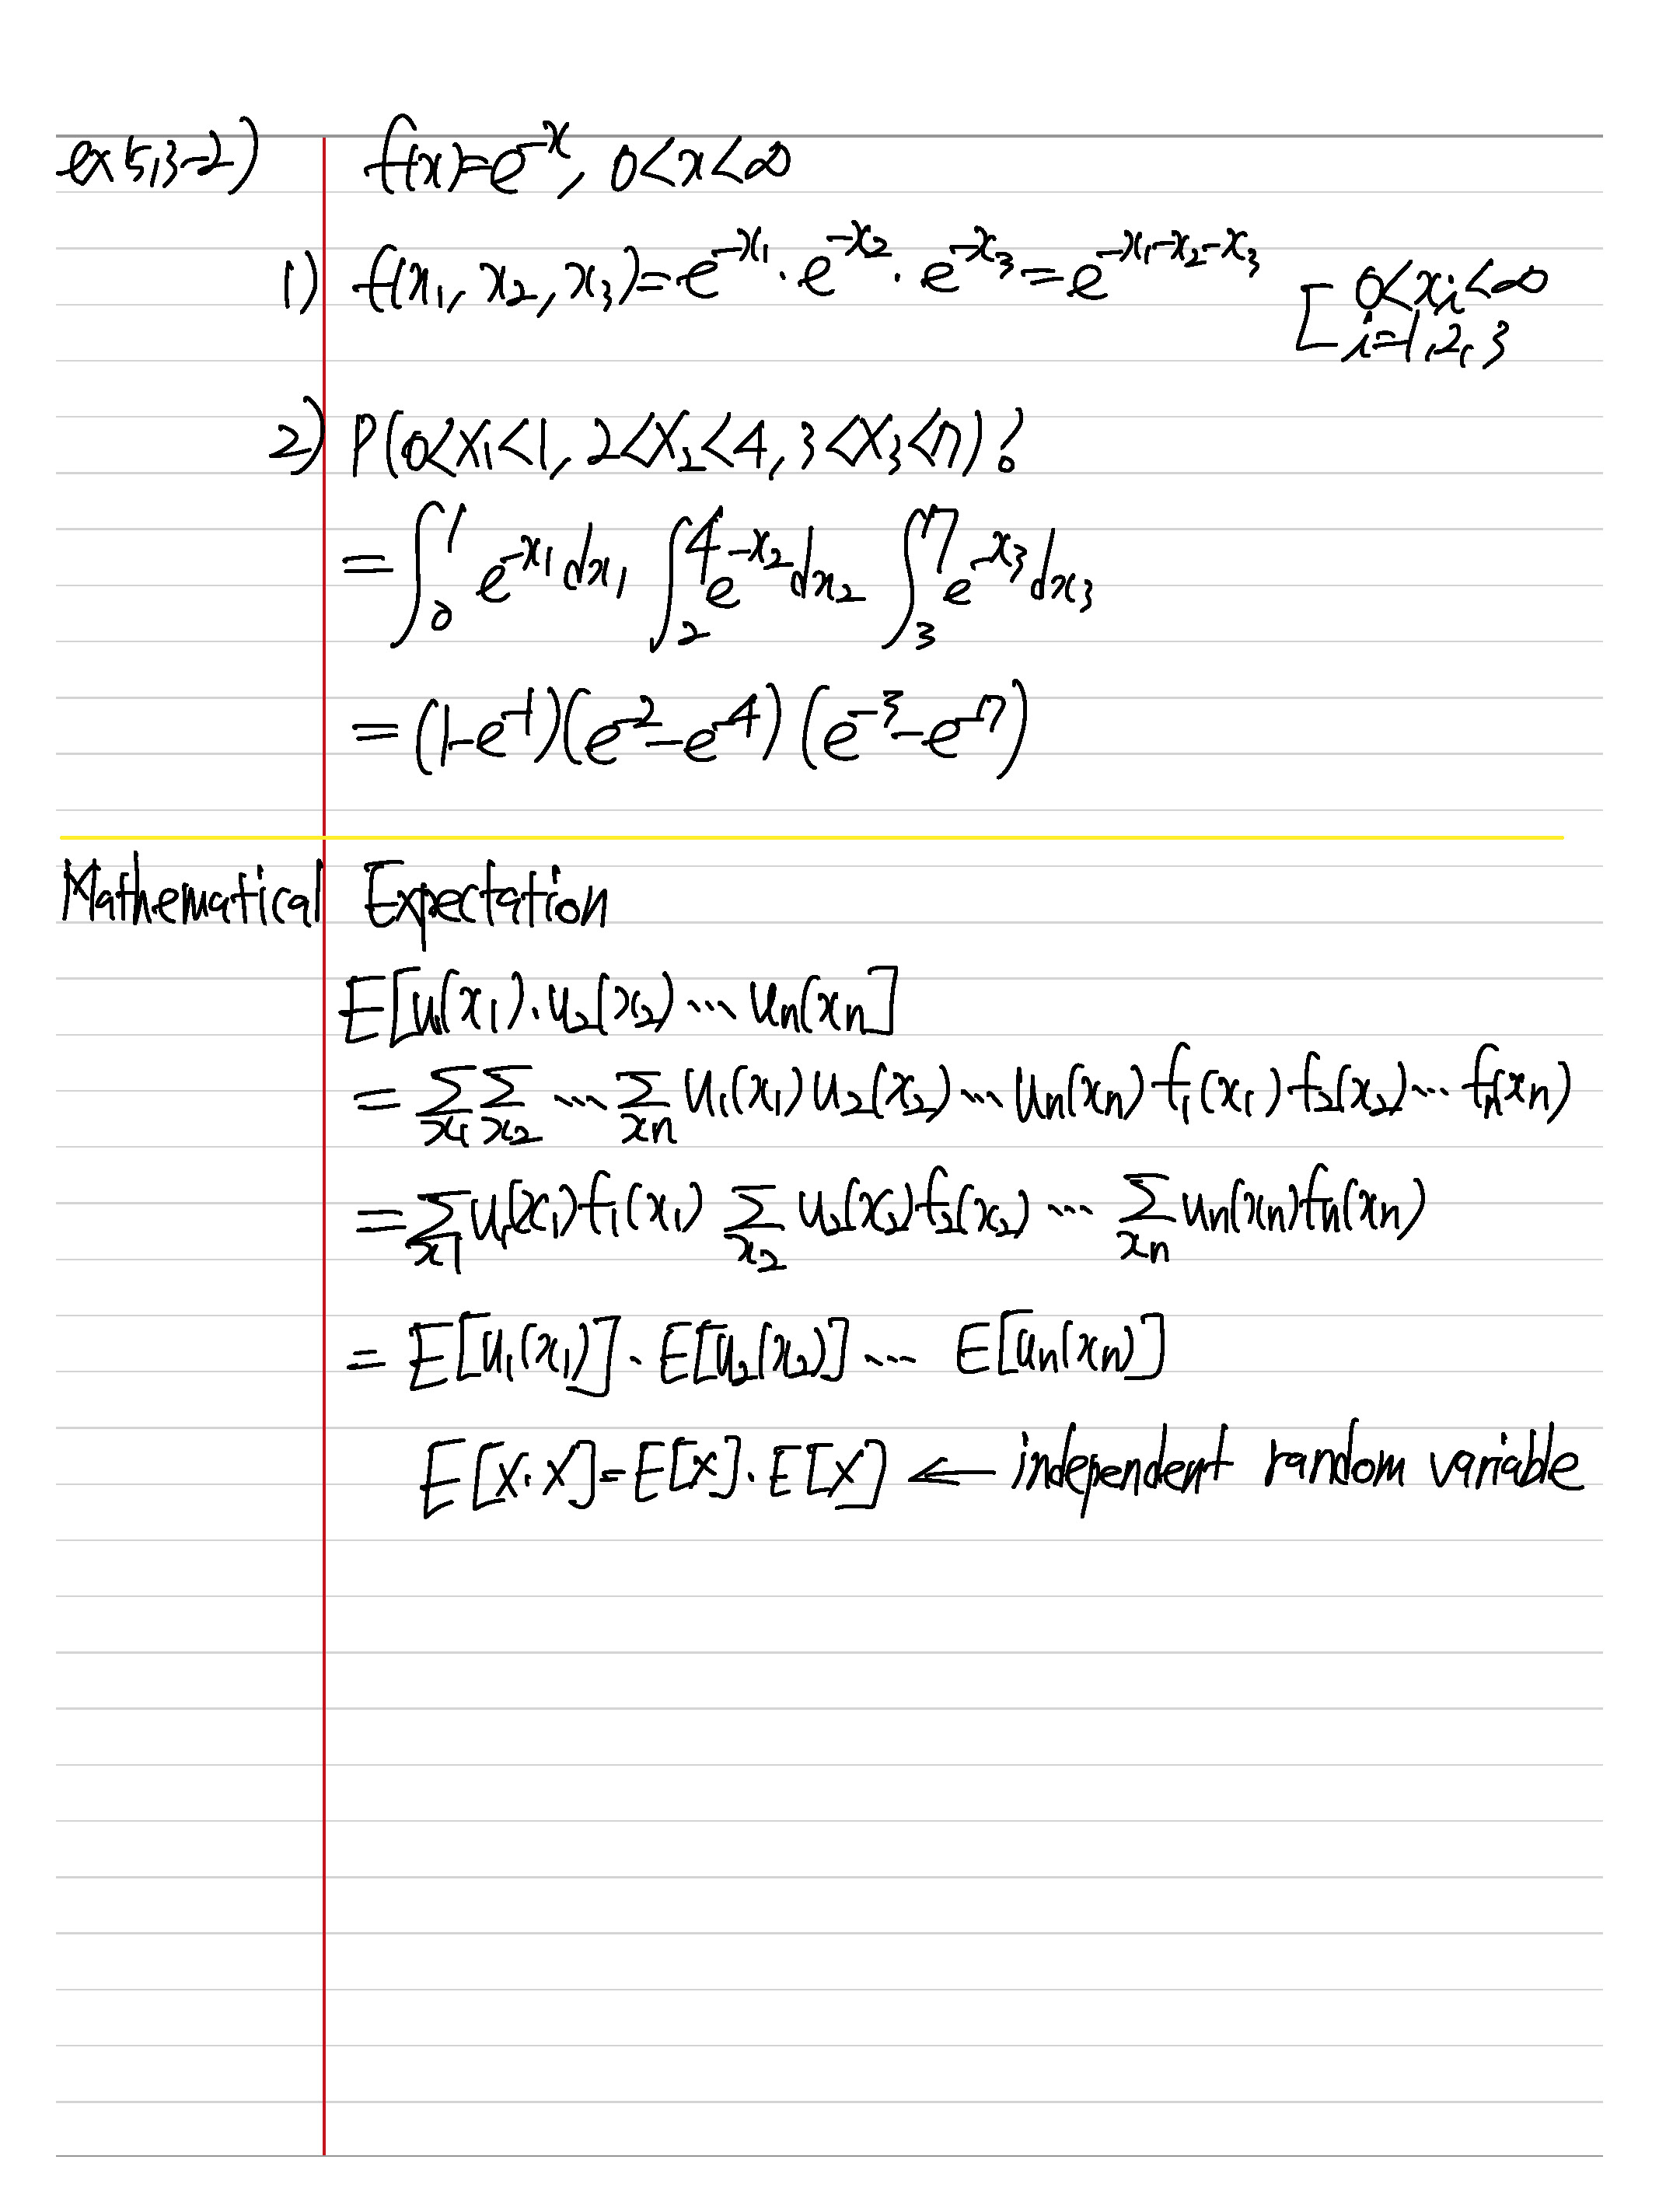 ex 5.3-2) f(x)=e^{-x}, 0<x<∞
1) f(x₁, x₂, x₃)=e^{-x₁}·e^{-x₂}·e^{-x₃}=e^{-x₁-x₂-x₃} [0<xᵢ<∞
i=1,2,3
2) P(0<X₁<1, 2<X₂<4, 3<X₃<7)?
=∫₀¹ e^{-x₁}dx₁ ∫₂⁴ e^{-x₂}dx₂ ∫₃⁷ e^{-x₃}dx₃
=(1-e^{-1})(e^{-2}-e^{-4})(e^{-3}-e^{-7})
Mathematical Expectation
E[u₁(x₁)·u₂(x₂)⋯uₙ(xₙ]
=∑_{x₁}∑_{x₂}⋯∑_{xₙ} u₁(x₁)u₂(x₂)⋯uₙ(xₙ)f₁(x₁)f₂(x₂)⋯fₙ(xₙ)
=∑_{x₁}u₁(x₁)f₁(x₁) ∑_{x₂}u₂(x₂)f₂(x₂)⋯∑_{xₙ}uₙ(xₙ)fₙ(xₙ)
=E[u₁(x₁)]·E[u₂(x₂)]⋯E[uₙ(xₙ)]
E[X·X]=E[X]·E[X] ← independent random variable